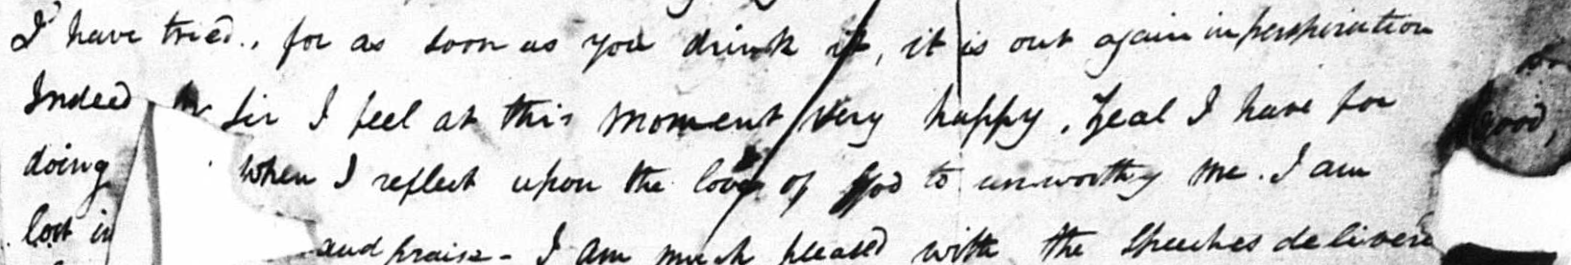 I have tried, for as soon as you drink it, it is out again in perspiration
Indeed Sir I feel at this moment very happy, Zeal I have for
doing good, when I reflect upon the love of God to unworthy me. I am
lost in and praise - I am much pleased with the Speeches deliver'd